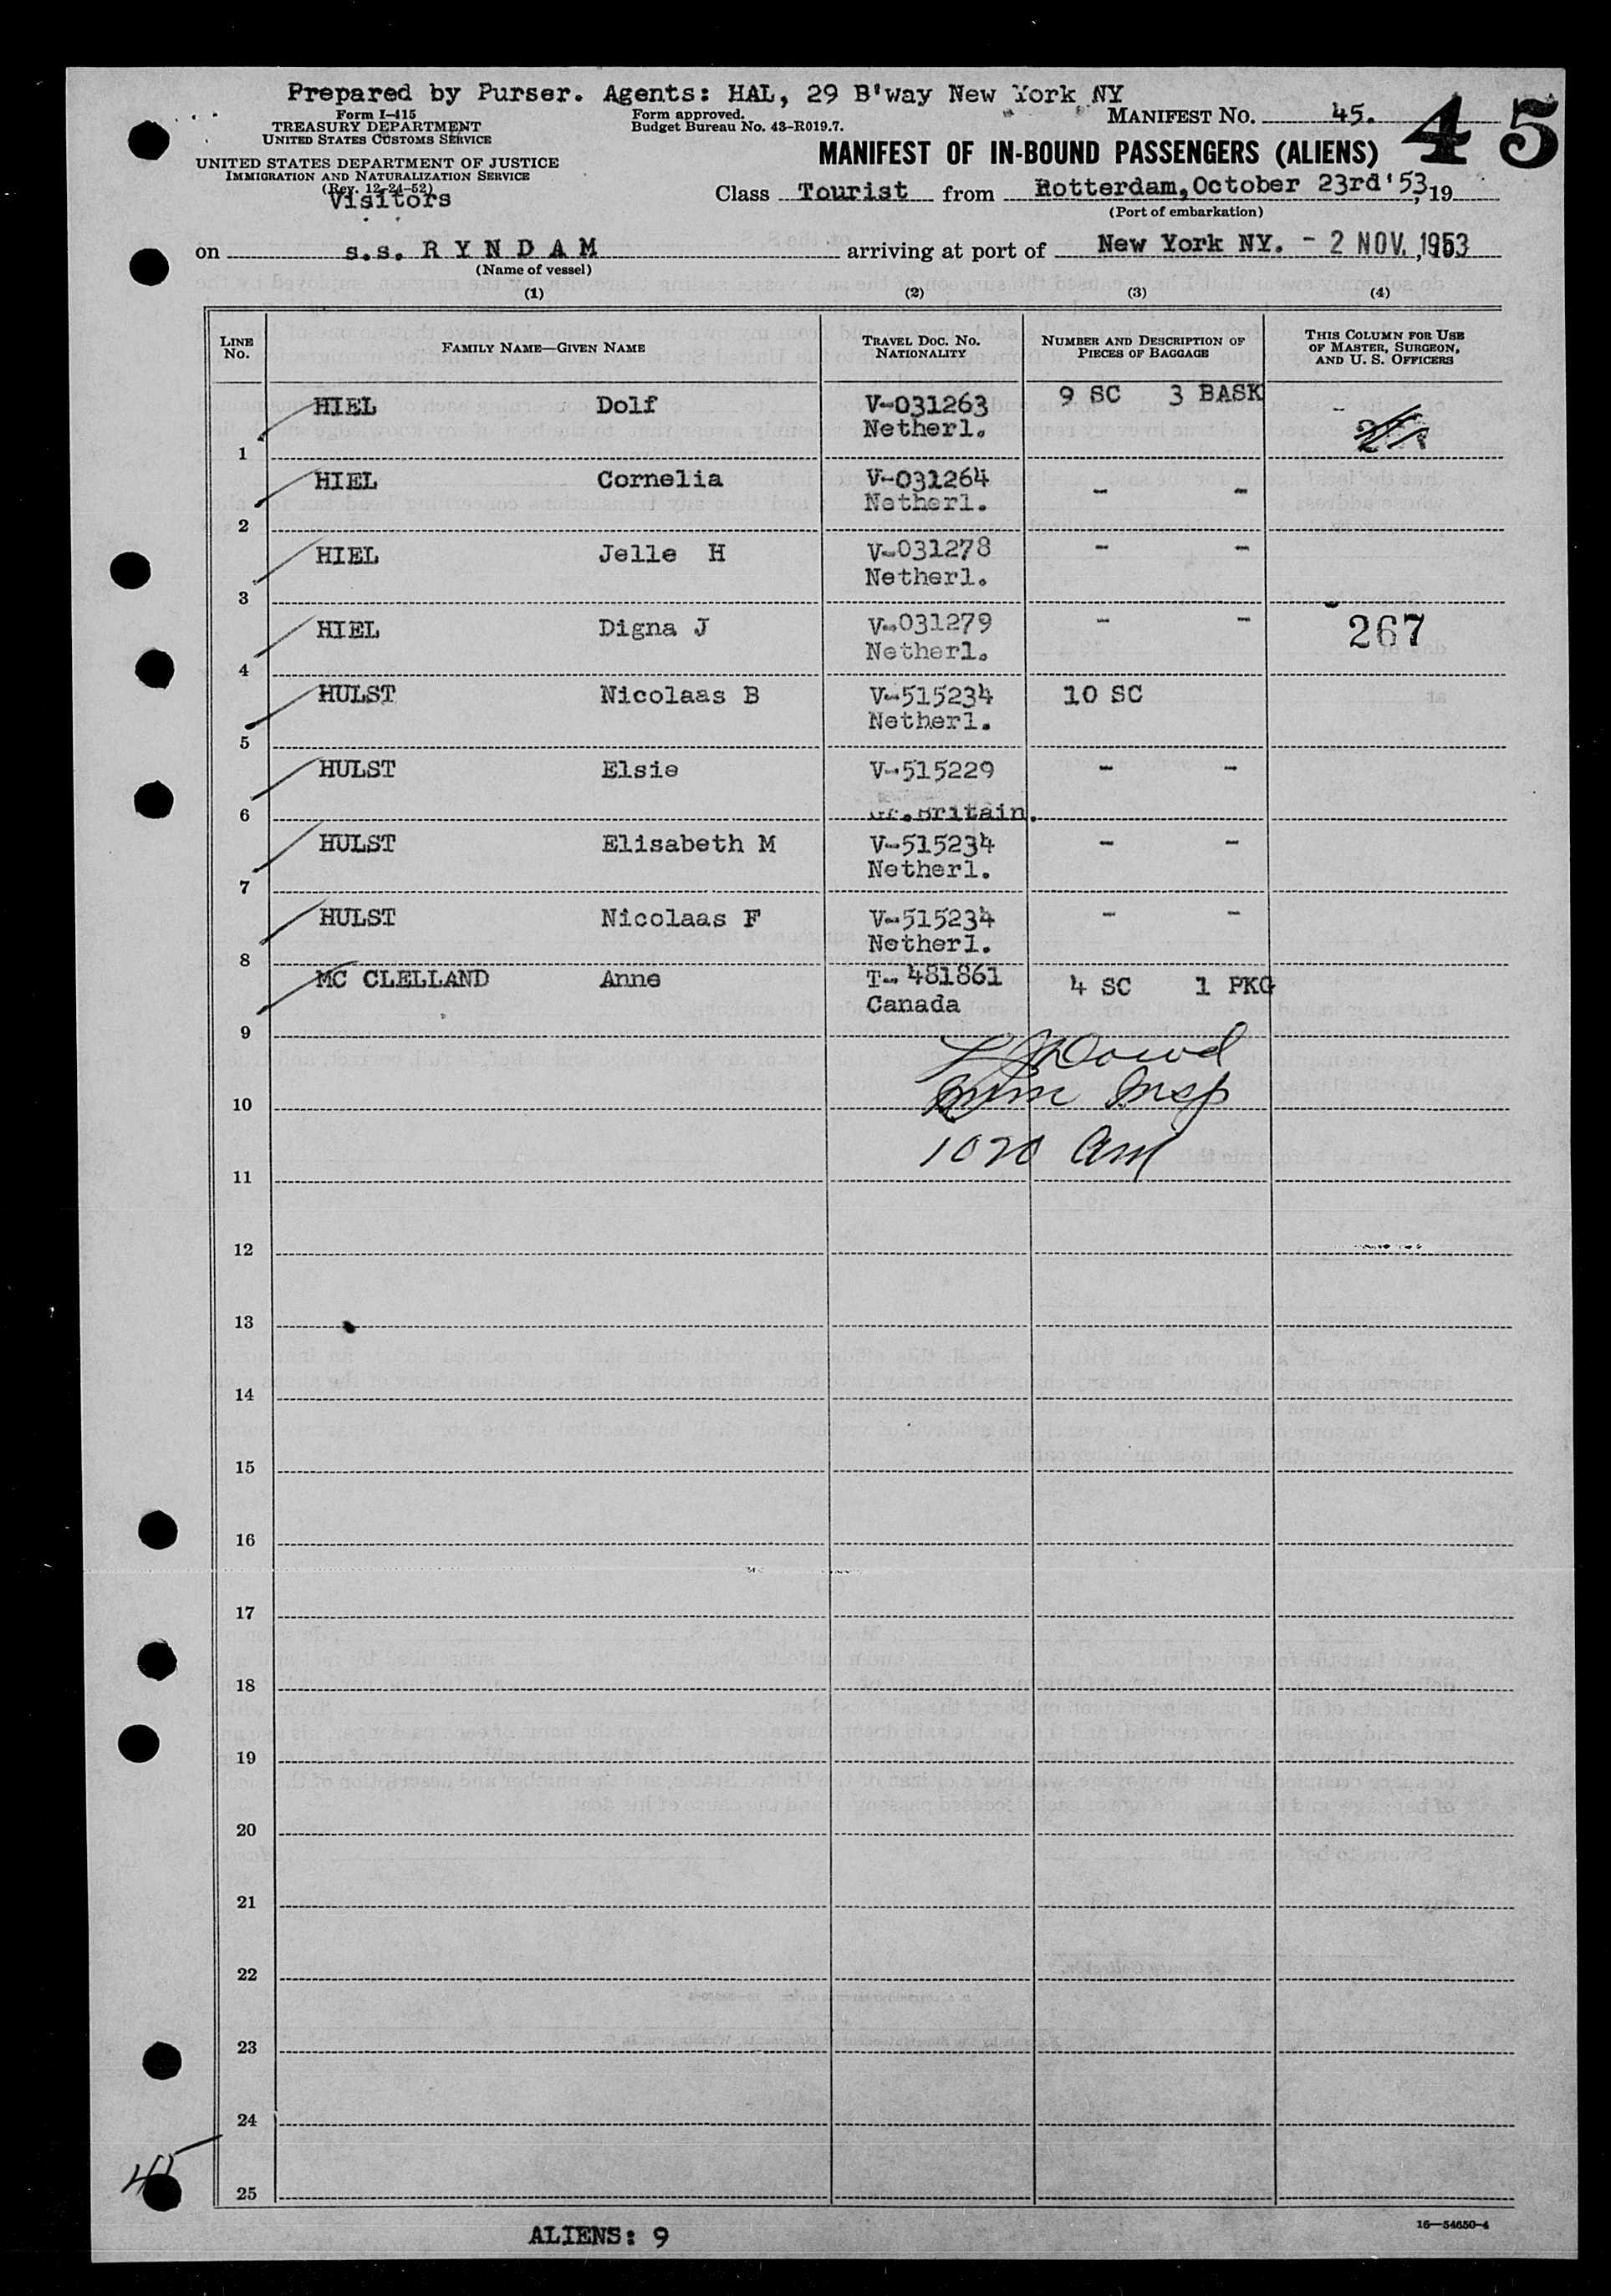 Prepared by Purser. Agents: HAL, 29 B'way New York NY
Form I-415
TREASURY DEPARTMENT
UNITED STATES CUSTOMS SERVICE
Form approved.
Budget Bureau No. 43-R019.7.
MANIFEST NO. 45.
45
UNITED STATES DEPARTMENT OF JUSTICE
IMMIGRATION AND NATURALIZATION SERVICE
(Rev. 12-24-52)
Visitors
MANIFEST OF IN-BOUND PASSENGERS (ALIENS)
Class Tourist from Rotterdam, October 23rd '53, 19
(Port of embarkation)
on s.s. R Y N D A M arriving at port of New York NY. - 2 NOV. , 1953
(Name of vessel)
(1) (2) (3) (4)
LINE NO. FAMILY NAME—GIVEN NAME TRAVEL DOC. NO. NATIONALITY NUMBER AND DESCRIPTION OF PIECES OF BAGGAGE THIS COLUMN FOR USE OF MASTER, SURGEON, AND U. S. OFFICERS
1 HIEL Dolf V-031263 9 SC 3 BASK -
Netherl.
2 HIEL Cornelia V-031264 - -
Netherl.
3 HIEL Jelle H V-031278 - -
Netherl.
4 HIEL Digna J V-031279 - - 267
Netherl.
5 HULST Nicolaas B V-515234 10 SC
Netherl.
6 HULST Elsie V-515229 - -
Gr.Britain.
7 HULST Elisabeth M V-515234 - -
Netherl.
8 HULST Nicolaas F V-515234 - -
Netherl.
9 MC CLELLAND Anne T-481861 4 SC 1 PKG
Canada
10 Imm Insp
11 1020 am
12
13
14
15
16
17
18
19
20
21
22
23
24
25
45
ALIENS: 9
16—54650-4